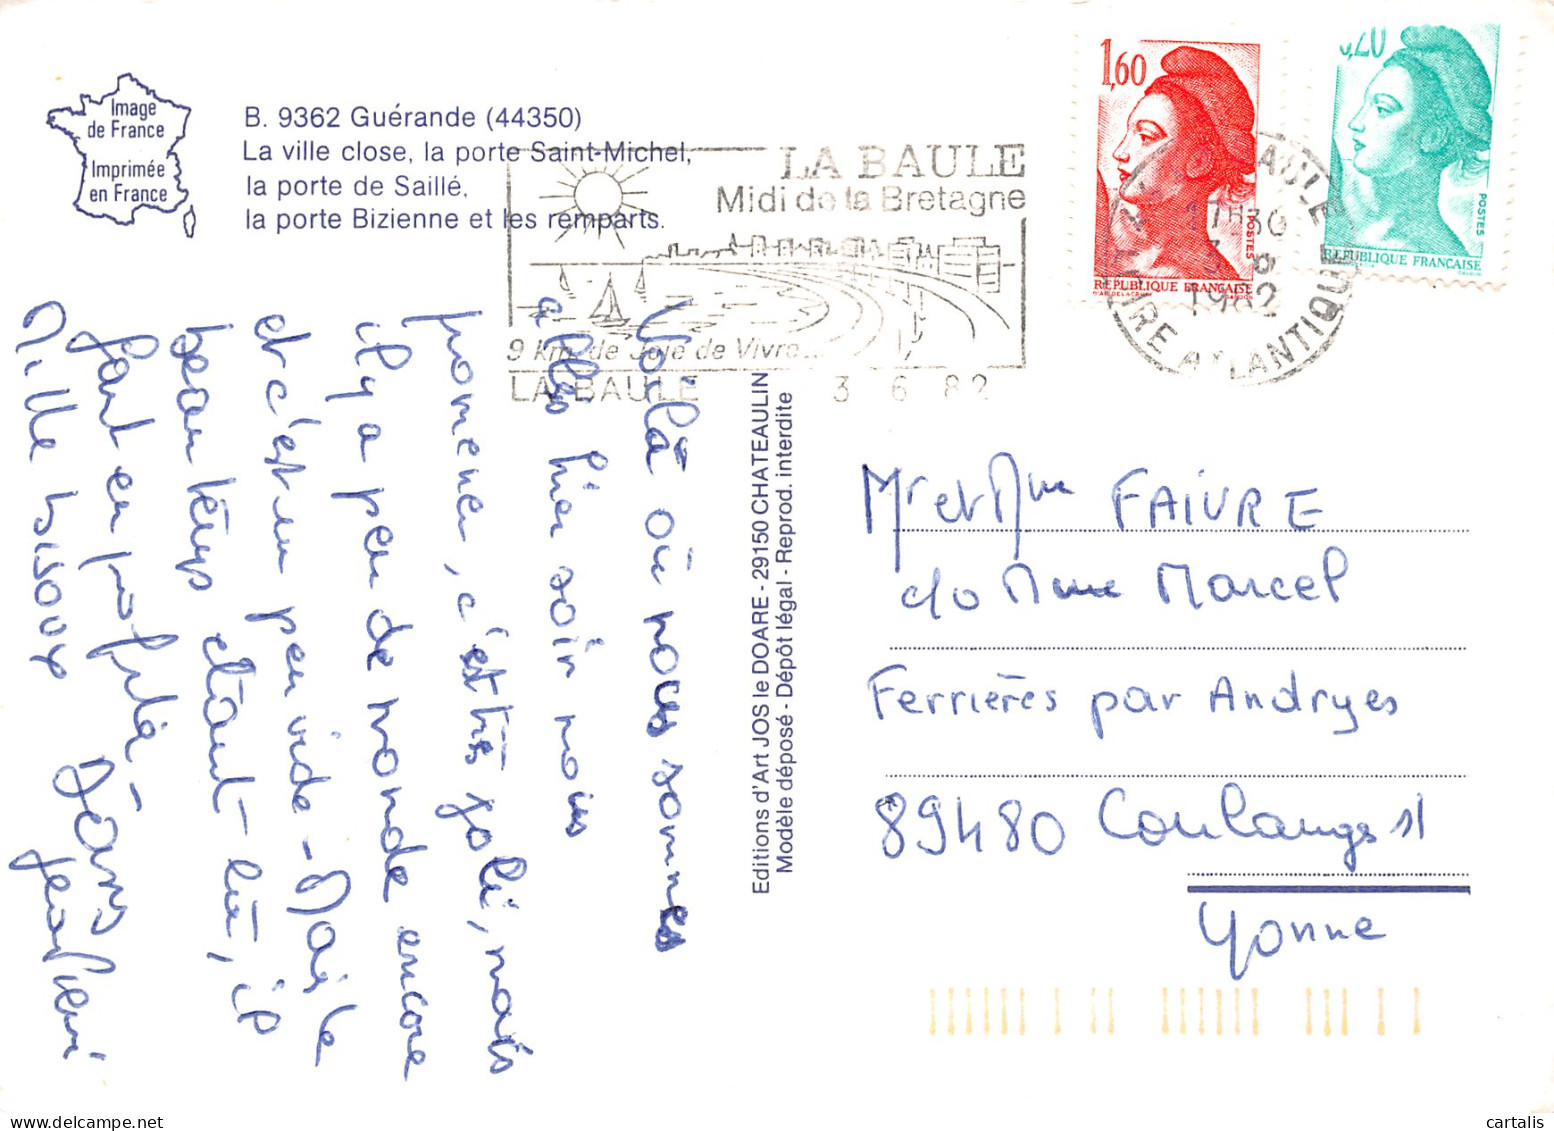 Image
de France
Imprimée
en France
B. 9362 Guérande (44350)
La ville close, la porte Saint-Michel,
la porte de Saillé,
la porte Bizienne et les remparts.
LA BAULE
Midi de la Bretagne
9 km de Joie de Vivre...
LA BAULE 3 6 82
1,60
POSTES
REPUBLIQUE FRANÇAISE
0,20
POSTES
REPUBLIQUE FRANÇAISE
17H30
3 6
1982
LOIRE ATLANTIQUE
Voilà où nous sommes
allés hier soir nous
promener, c'est très joli, mais
il y a peu de monde encore
et c'est un peu vide - Mais le
beau temps étant là, il
faut en profiter -
Mille bisous
Editions d'Art JOS le DOARE - 29150 CHATEAULIN
Modèle déposé - Dépôt légal - Reprod. interdite
Mr et Mme FAIVRE
c/o Mme Marcel
Ferrières par Andryes
89480 Coulanges s/
Yonne
cartalis